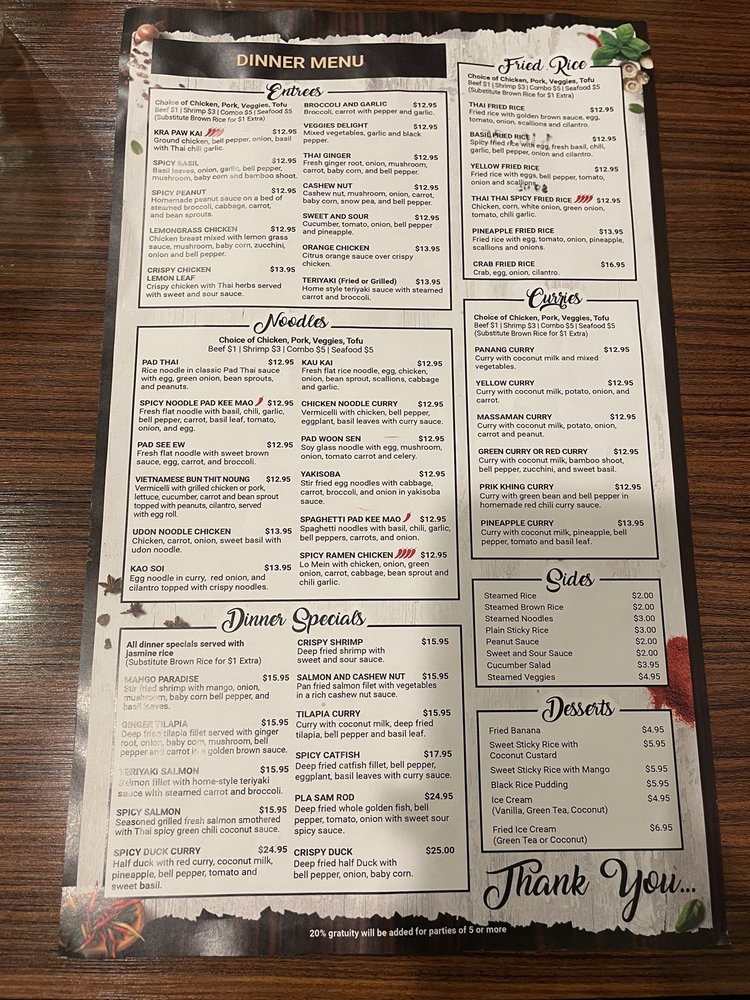 DINNER MENU
Entrees
Choice of Chicken, Pork, Veggies, Tofu
Beef $1 | Shrimp $3 | Combo $5 | Seafood $5
(Substitute Brown Rice for $1 Extra)
KRA PAW KAI $12.95
Ground chicken, bell pepper, onion, basil
with Thai chili garlic.
SPICY BASIL $12.95
Basil leaves, onion, garlic, bell pepper,
mushroom, baby corn and bamboo shoot.
SPICY PEANUT $12.95
Homemade peanut sauce on a bed of
steamed broccoli, cabbage, carrot,
and bean sprouts.
LEMONGRASS CHICKEN $12.95
Chicken breast mixed with lemon grass
sauce, mushroom, baby corn, zucchini,
onion and bell pepper.
CRISPY CHICKEN $13.95
LEMON LEAF
Crispy chicken with Thai herbs served
with sweet and sour sauce.
BROCCOLI AND GARLIC $12.95
Broccoli, carrot with pepper and garlic.
VEGGIES DELIGHT $12.95
Mixed vegetables, garlic and black
pepper.
THAI GINGER $12.95
Fresh ginger root, onion, mushroom,
carrot, baby corn, and bell pepper.
CASHEW NUT $12.95
Cashew nut, mushroom, onion, carrot,
baby corn, snow pea, and bell pepper.
SWEET AND SOUR $12.95
Cucumber, tomato, onion, bell pepper
and pineapple.
ORANGE CHICKEN $13.95
Citrus orange sauce over crispy
chicken.
TERIYAKI (Fried or Grilled) $13.95
Home style teriyaki sauce with steamed
carrot and broccoli.
Noodles
Choice of Chicken, Pork, Veggies, Tofu
Beef $1 | Shrimp $3 | Combo $5 | Seafood $5
PAD THAI $12.95
Rice noodle in classic Pad Thai sauce
with egg, green onion, bean sprouts,
and peanuts.
SPICY NOODLE PAD KEE MAO $12.95
Fresh flat noodle with basil, chili, garlic,
bell pepper, carrot, basil leaf, tomato,
onion, and egg.
PAD SEE EW $12.95
Fresh flat noodle with sweet brown
sauce, egg, carrot, and broccoli.
VIETNAMESE BUN THIT NOUNG $12.95
Vermicelli with grilled chicken or pork,
lettuce, cucumber, carrot and bean sprout
topped with peanuts, cilantro, served
with egg roll.
UDON NOODLE CHICKEN $13.95
Chicken, carrot, onion, sweet basil with
udon noodle.
KAO SOI $13.95
Egg noodle in curry, red onion, and
cilantro topped with crispy noodles.
KAU KAI $12.95
Fresh flat rice noodle, egg, chicken,
onion, bean sprout, scallions, cabbage
and garlic.
CHICKEN NOODLE CURRY $12.95
Vermicelli with chicken, bell pepper,
eggplant, basil leaves with curry sauce.
PAD WOON SEN $12.95
Soy glass noodle with egg, mushroom,
onion, tomato carrot and celery.
YAKISOBA $12.95
Stir fried egg noodles with cabbage,
carrot, broccoli, and onion in yakisoba
sauce.
SPAGHETTI PAD KEE MAO $12.95
Spaghetti noodles with basil, chili, garlic,
bell peppers, carrots, and onion.
SPICY RAMEN CHICKEN $12.95
Lo Mein with chicken, onion, green
onion, carrot, cabbage, bean sprout and
chili garlic.
Dinner Specials
All dinner specials served with
jasmine rice
(Substitute Brown Rice for $1 Extra)
MANGO PARADISE $15.95
Stir fried shrimp with mango, onion,
mushroom, baby corn bell pepper, and
basil leaves.
GINGER TILAPIA $15.95
Deep fried tilapia fillet served with ginger
root, onion, baby corn, mushroom, bell
pepper and carrot in a golden brown sauce.
TERIYAKI SALMON $15.95
Salmon fillet with home-style teriyaki
sauce with steamed carrot and broccoli.
SPICY SALMON $15.95
Seasoned grilled fresh salmon smothered
with Thai spicy green chili coconut sauce.
SPICY DUCK CURRY $24.95
Half duck with red curry, coconut milk,
pineapple, bell pepper, tomato and
sweet basil.
CRISPY SHRIMP $15.95
Deep fried shrimp with
sweet and sour sauce.
SALMON AND CASHEW NUT $15.95
Pan fried salmon filet with vegetables
in a rich cashew nut sauce.
TILAPIA CURRY $15.95
Curry with coconut milk, deep fried
tilapia, bell pepper and basil leaf.
SPICY CATFISH $17.95
Deep fried catfish fillet, bell pepper,
eggplant, basil leaves with curry sauce.
PLA SAM ROD $24.95
Deep fried whole golden fish, bell
pepper, tomato, onion with sweet sour
spicy sauce.
CRISPY DUCK $25.00
Deep fried half Duck with
bell pepper, onion, baby corn.
Fried Rice
Choice of Chicken, Pork, Veggies, Tofu
Beef $1 | Shrimp $3 | Combo $5 | Seafood $5
(Substitute Brown Rice for $1 Extra)
THAI FRIED RICE $12.95
Fried rice with golden brown sauce, egg,
tomato, onion, scallions and cilantro.
BASIL FRIED RICE $12.95
Spicy fried rice with egg, fresh basil, chili,
garlic, bell pepper, onion and cilantro.
YELLOW FRIED RICE $12.95
Fried rice with eggs, bell pepper, tomato,
onion and scallions.
THAI THAI SPICY FRIED RICE $12.95
Chicken, corn, white onion, green onion,
tomato, chili garlic.
PINEAPPLE FRIED RICE $13.95
Fried rice with egg, tomato, onion, pineapple,
scallions and onions.
CRAB FRIED RICE $16.95
Crab, egg, onion, cilantro.
Curries
Choice of Chicken, Pork, Veggies, Tofu
Beef $1 | Shrimp $3 | Combo $5 | Seafood $5
(Substitute Brown Rice for $1 Extra)
PANANG CURRY $12.95
Curry with coconut milk and mixed
vegetables.
YELLOW CURRY $12.95
Curry with coconut milk, potato, onion, and
carrot.
MASSAMAN CURRY $12.95
Curry with coconut milk, potato, onion,
carrot and peanut.
GREEN CURRY OR RED CURRY $12.95
Curry with coconut milk, bamboo shoot,
bell pepper, zucchini, and sweet basil.
PRIK KHING CURRY $12.95
Curry with green bean and bell pepper in
homemade red chili curry sauce.
PINEAPPLE CURRY $13.95
Curry with coconut milk, pineapple, bell
pepper, tomato and basil leaf.
Sides
Steamed Rice $2.00
Steamed Brown Rice $2.00
Steamed Noodles $3.00
Plain Sticky Rice $3.00
Peanut Sauce $2.00
Sweet and Sour Sauce $2.00
Cucumber Salad $3.95
Steamed Veggies $4.95
Desserts
Fried Banana $4.95
Sweet Sticky Rice with $5.95
Coconut Custard
Sweet Sticky Rice with Mango $5.95
Black Rice Pudding $5.95
Ice Cream $4.95
(Vanilla, Green Tea, Coconut)
Fried Ice Cream $6.95
(Green Tea or Coconut)
Thank You...
20% gratuity will be added for parties of 5 or more